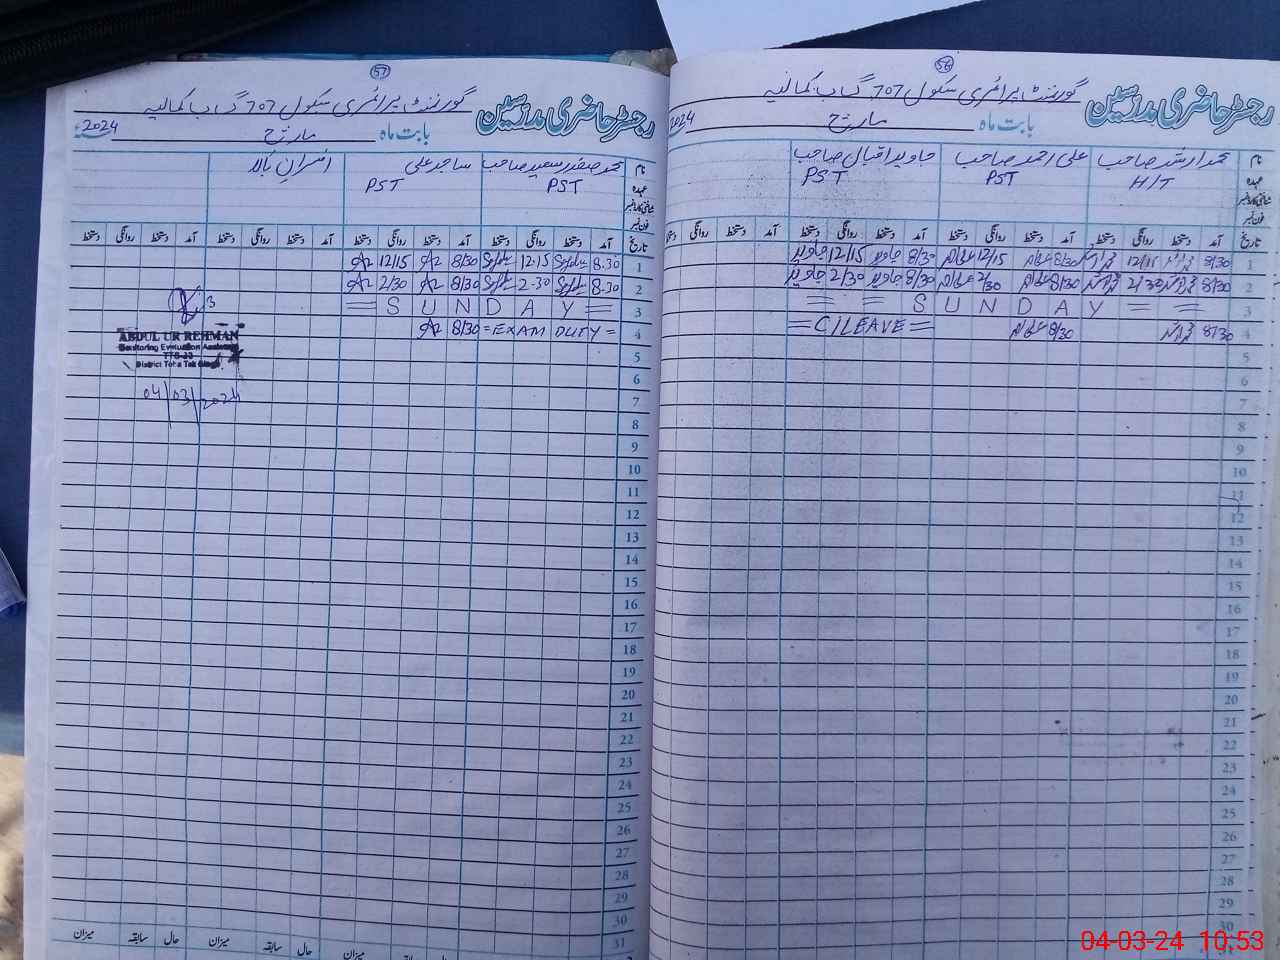 56
گورنمنٹ پرائمری سکول 707 گ ب کمالیہ
رجسٹر حاضری مدرسین
بابت ماہ مارچ 2024
نام محمد ارشد صاحب علی احمد صاحب جاوید اقبال صاحب
عہدہ H/T PST PST
شناختی کارڈ نمبر
فون نمبر
تاریخ آمد دستخط روانگی دستخط آمد دستخط روانگی دستخط آمد دستخط روانگی دستخط آمد دستخط روانگی دستخط
1 8/30 12/15 8/30 12/15 8/30 جاوید 12/15 جاوید
2 8/30 2/30 8/30 2/30 8/30 جاوید 2/30 جاوید
3 = = S U N D A Y = =
4 8/30 8/30 = C/LEAVE =
5
6
7
8
9
10
11
12
13
14
15
16
17
18
19
20
21
22
23
24
25
26
27
28
29
30
57
گورنمنٹ پرائمری سکول 707 گ ب کمالیہ
رجسٹر حاضری مدرسین
بابت ماہ مارچ 2024
نام محمد صفدر سعید صاحب ساجد علی افسران بالا
عہدہ PST PST
شناختی کارڈ نمبر
فون نمبر
تاریخ آمد دستخط روانگی دستخط آمد دستخط روانگی دستخط آمد دستخط روانگی دستخط آمد دستخط روانگی دستخط
1 8.30 12.15 8/30 12/15
2 8.30 2-30 8/30 2/30
3 = S U N D A Y =
4 = EXAM DUTY = 8/30
5
6
7
8
9
10
11
12
13
14
15
16
17
18
19
20
21
22
23
24
25
26
27
28
29
30
31
ABDUL UR REHMAN
Monitoring Evaluation Assistant
District Toba Tek Singh
04/03/2024
میزان سابقہ حال میزان سابقہ حال میزان
04-03-24 10:53